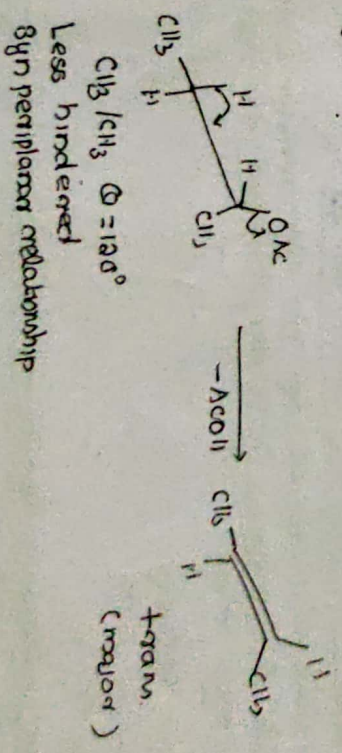 CH3
H
H
H
OAc
CH3
CH3/CH3 Θ = 120°
Less hindered
Syn periplanar relationship
-AcOH
CH3
H
H
CH3
trans
(major)